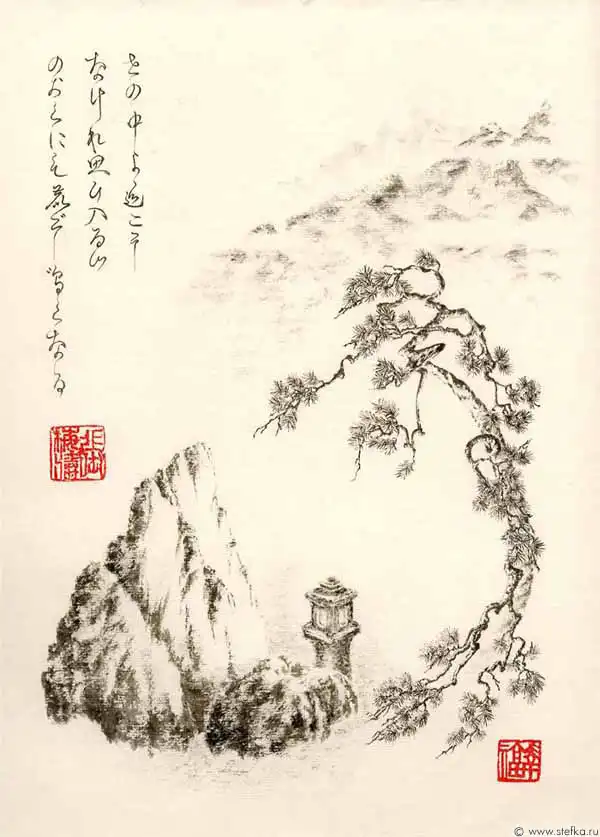 世の中よ道こそ
なけれ思ひ入る山
のおくにも鹿ぞ鳴くなる
© www.stefka.ru